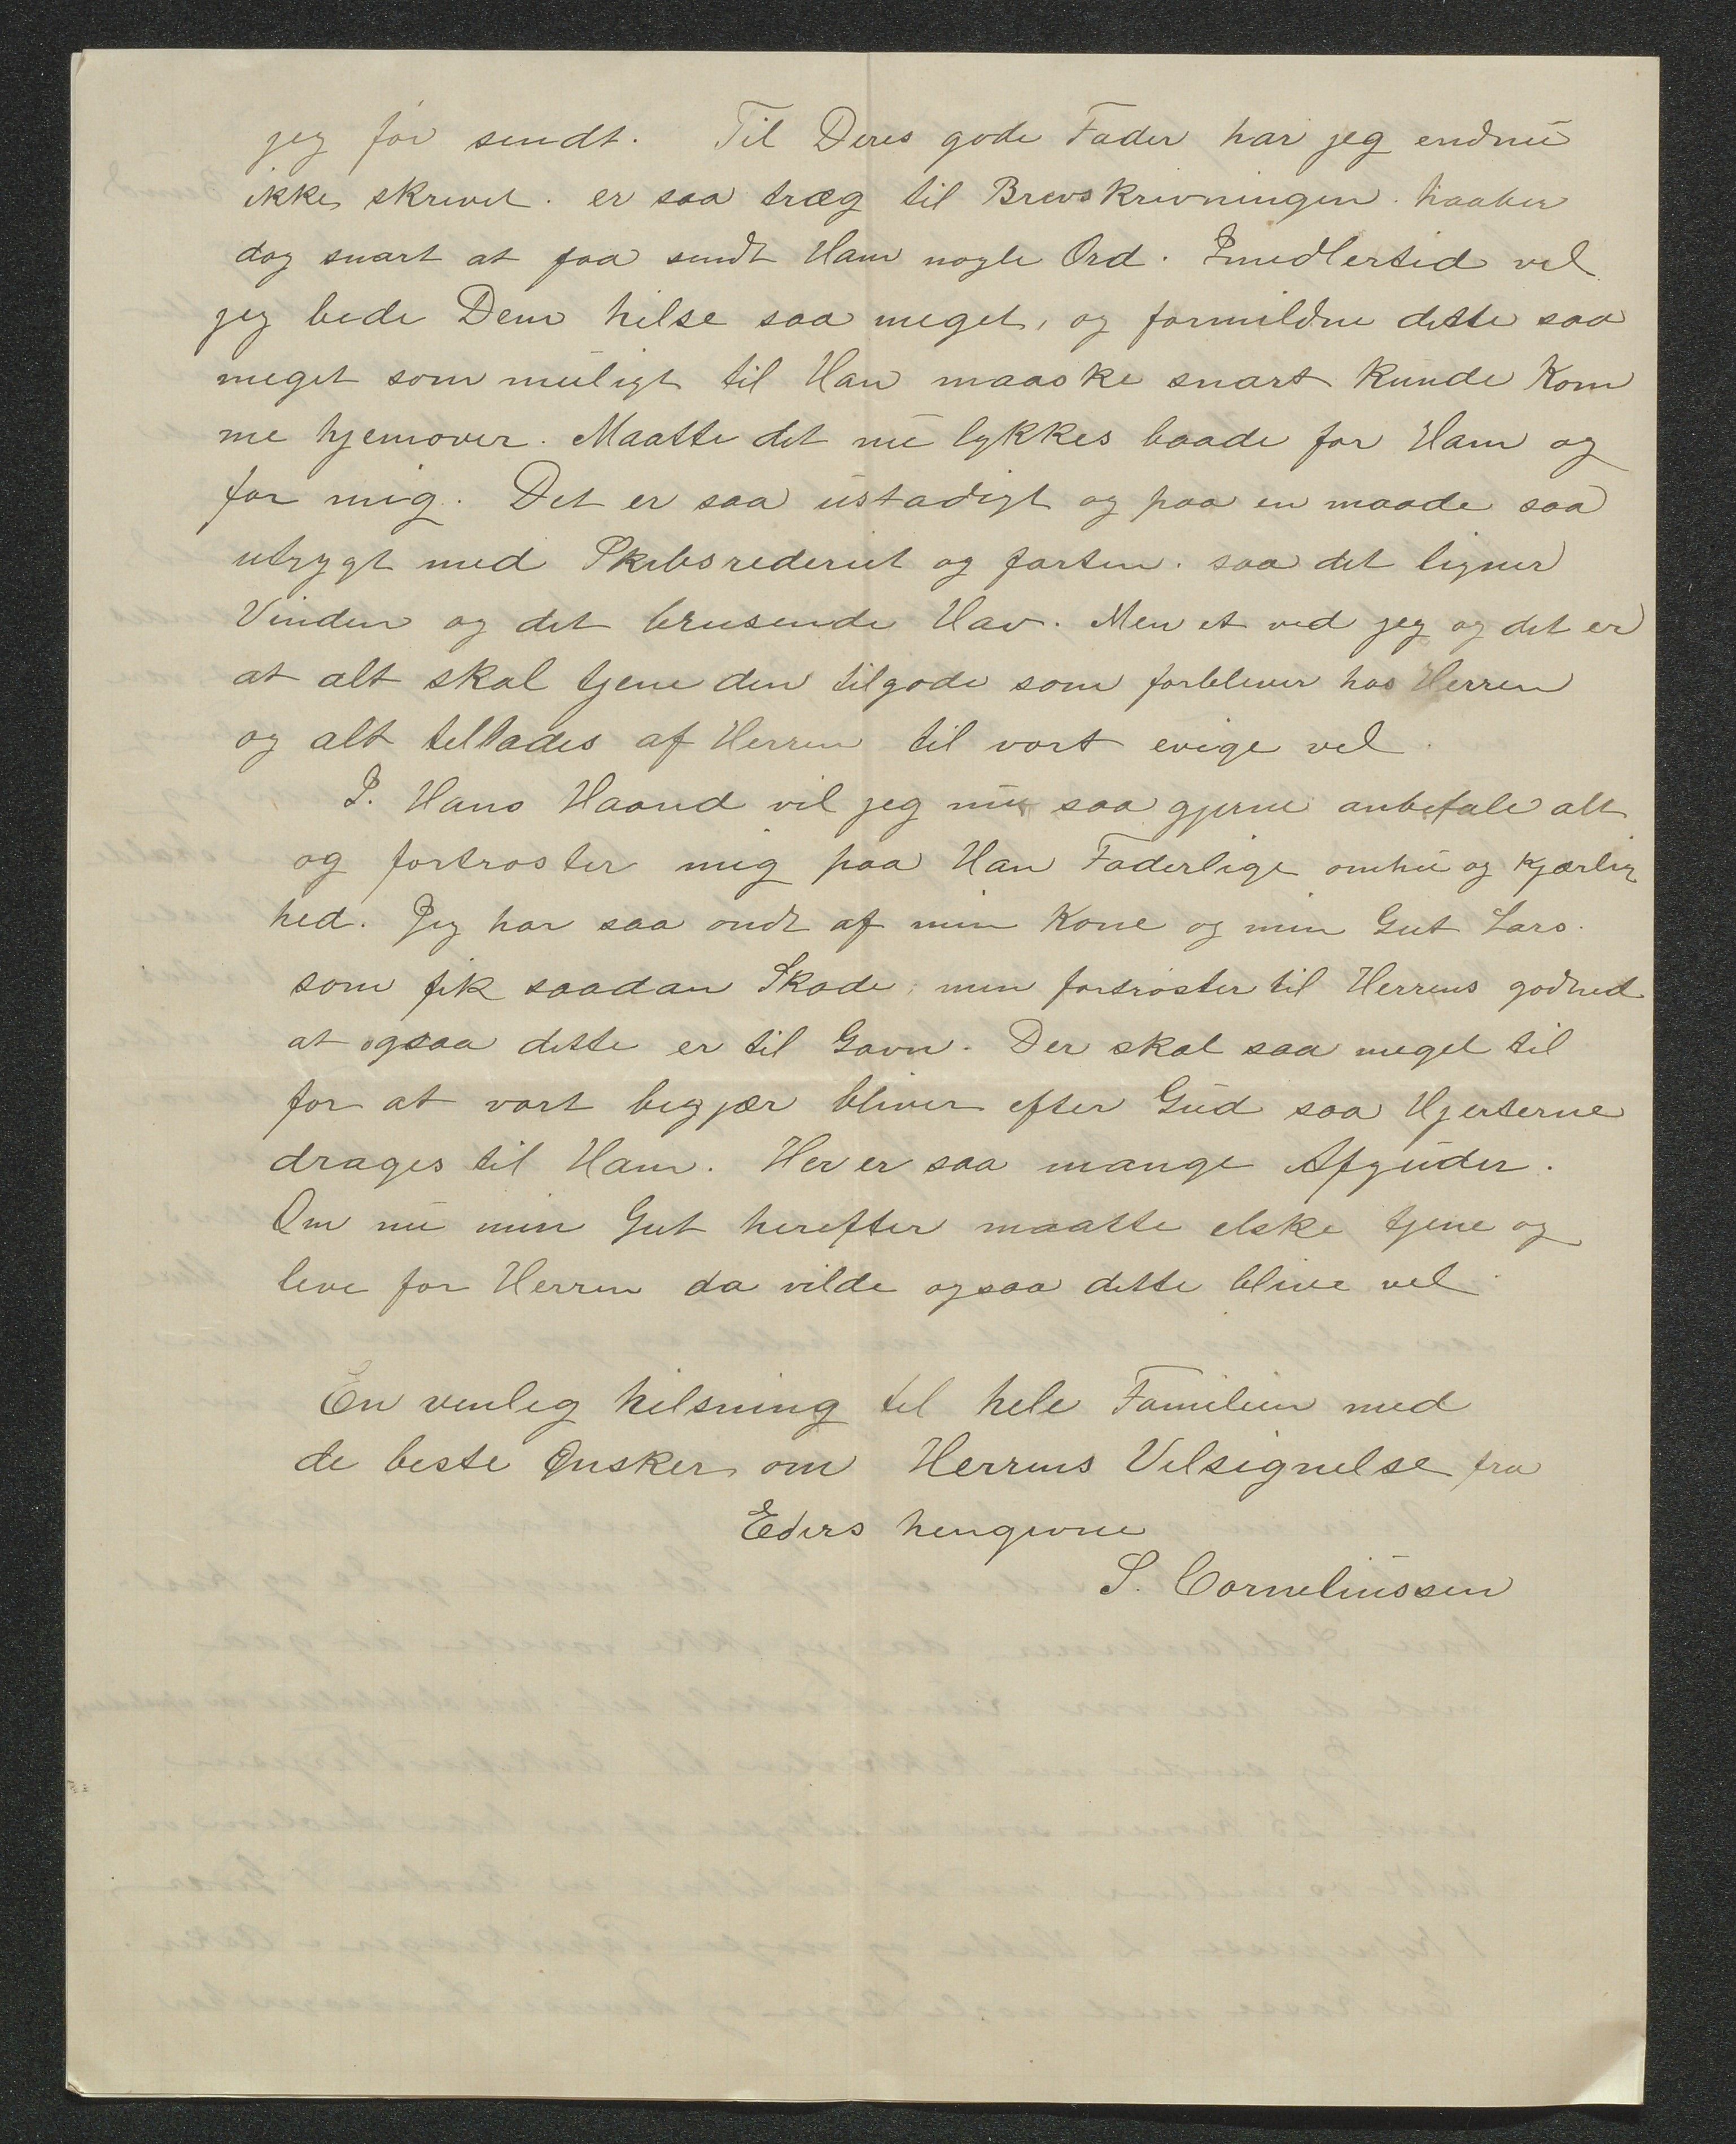 jeg før sendt. Til Deres gode Fader har jeg endnu
ikke skrevet. er saa træg til Brevskrivningen. haaber
dog snart at faa sendt Ham nogle Ord. Imidlertid vil
jeg bede Dem hilse saa meget, og formildne dette saa
meget som muligt til Han maaske snart kunde Kom
me hjemover. Maatte det nu lykkes baade for Ham og
for mig. Det er saa ustadigt og paa en maade saa
utrygt med Skibsrederiet og farten. saa det ligner
Vinden og det brusende Hav. Men et ved jeg og det er
at alt skal tjene den tilgode som forbliver hos Herren
og alt tillades af Herren til vort evige vel.
I. Hans Haand vil jeg nu saa gjerne anbefale alt
og fortrøster mig paa Han Faderlige omhu og Kjærlig
hed. Jeg har saa ondt af min Kone og min Gut Lars.
som fik saadan Skade, men fortrøster til Herrens godhed
at ogsaa dette er til Gavn. Der skal saa meget til
for at vort begjær bliver efter Gud saa Hjerterne
drages til Ham. Her er saa mange Afguder.
Om nu min Gut herefter maatte elske tjene og
leve for Herren da vilde ogsaa dette blive vel.
En venlig hilsning til hele Familien med
de beste Ønsker om Herrens Velsignelse fra
Eders hengivne
S. Corneliussen